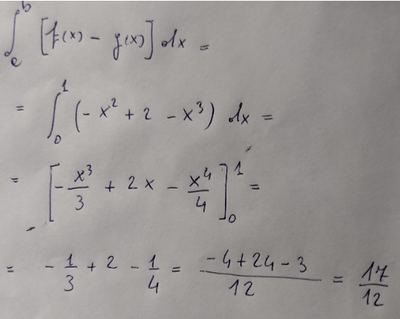 ∫_a^b [f(x) - g(x)] dx =
= ∫_0^1 (- x² + 2 - x³) dx =
= [- x³/3 + 2x - x⁴/4]_0^1 =
= - 1/3 + 2 - 1/4 = (-4 + 24 - 3)/12 = 17/12